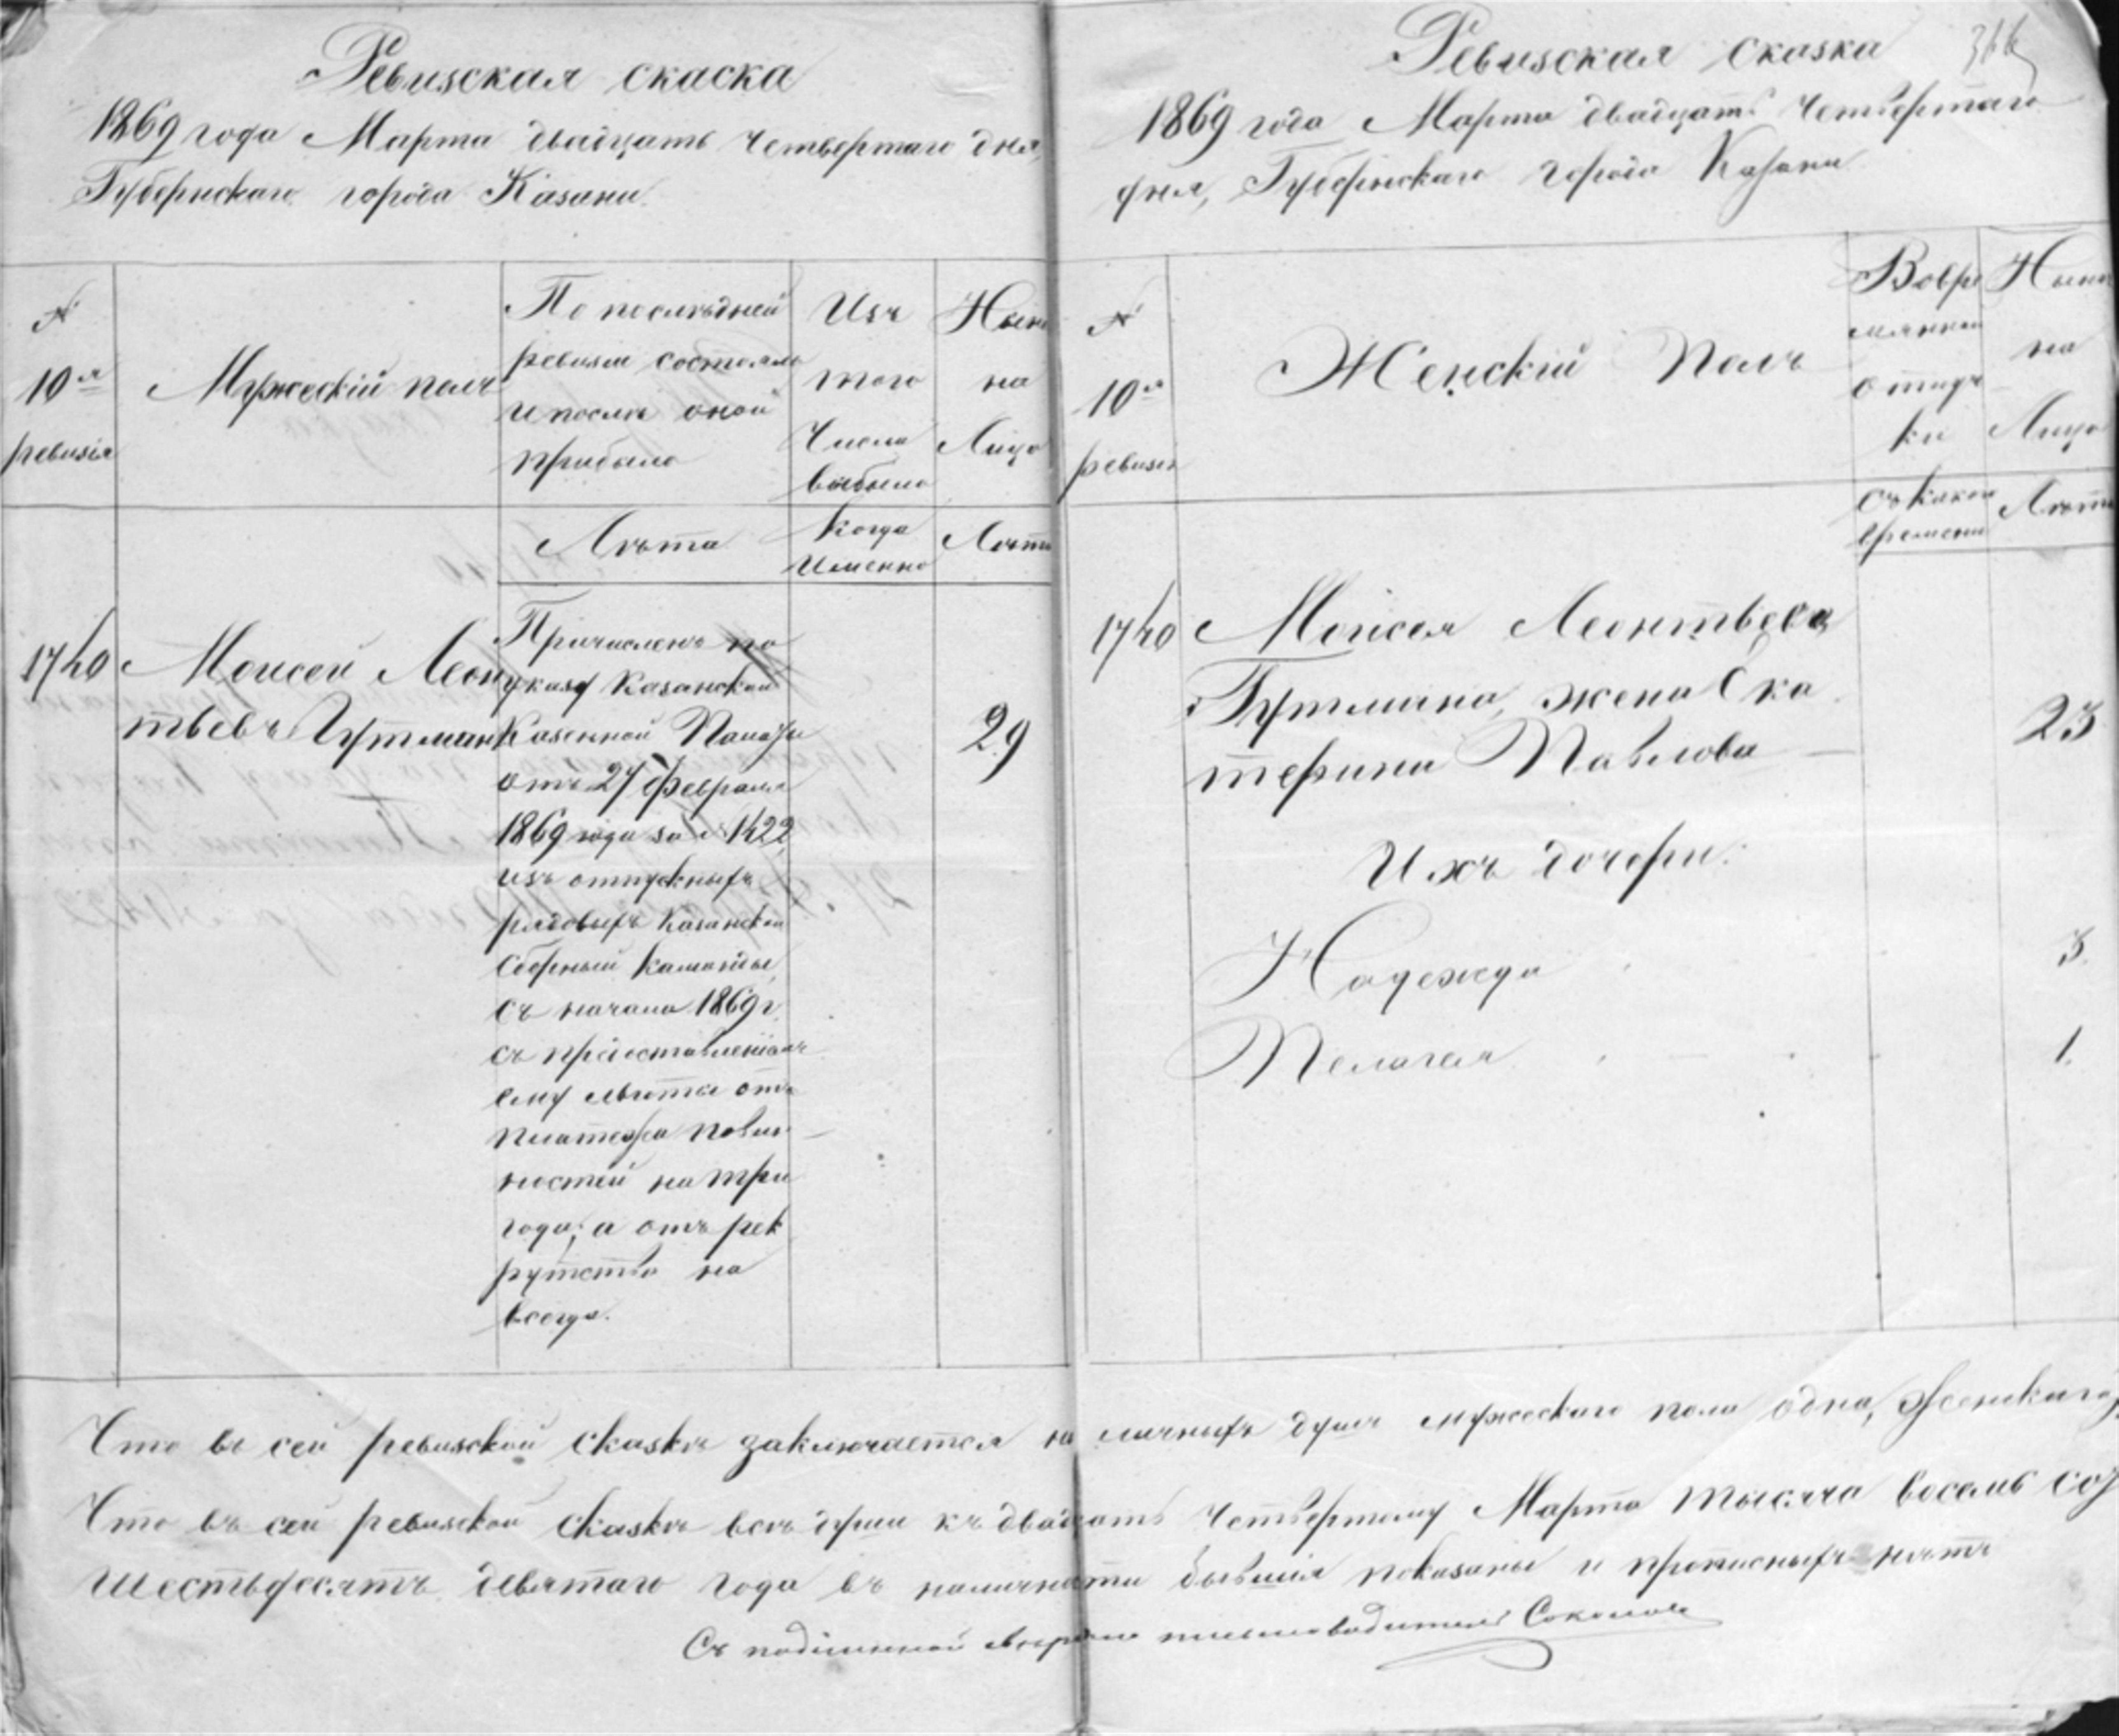 Ревизская скаска
1869 года Марта двадцать четвертаго дня,
Губернскаго города Казани.
№
10я
ревизiя
Мужескiй полъ
По последней
ревизiи состояло
и после оной
прибыло
Изъ
того
числа
выбыло
Ныне
на
лицо
Лѣта
Когда
именно
Лѣта
1740
Моисей Леон
тьевъ Гутман
Причисленъ по
указу Казанской
Казенной Палаты
отъ 27 Февраля
1869 года за № 1422,
изъ отпускныхъ
рядовыхъ Казанской
Сборный каманды,
съ начала 1869 г.
съ предоставленiемъ
ему льготы отъ
платежа повин
ностей на три
года, а отъ рек
рутства на
всегда.
29
Ревизская сказка
1869 года Марта двадцать четвертаго
дня, Губернскаго города Казани
№
10я
ревизiи
Женскiй Полъ
Вовре
мянной
отлуч
ки
Ныне
на
Лицо
съ какого
времени
Лѣта
1740
Моисея Леонтьева
Гутмана, жена Ека
терина Павлова
23
Ихъ дочери:
Надежда 3.
Пелагея 1.
Что въ сей ревизской сказкѣ заключается на личныхъ душъ мужескаго пола одна, Женскаго
Что въ сей ревизской сказкѣ всѣ души къ двадцать четвертому Марта тысяча восемь сот
шестьдесятъ девятаго года въ наличности бывшiя показаны и прописныхъ нѣтъ
Съ подлинной верно письмоводитель Соколовъ